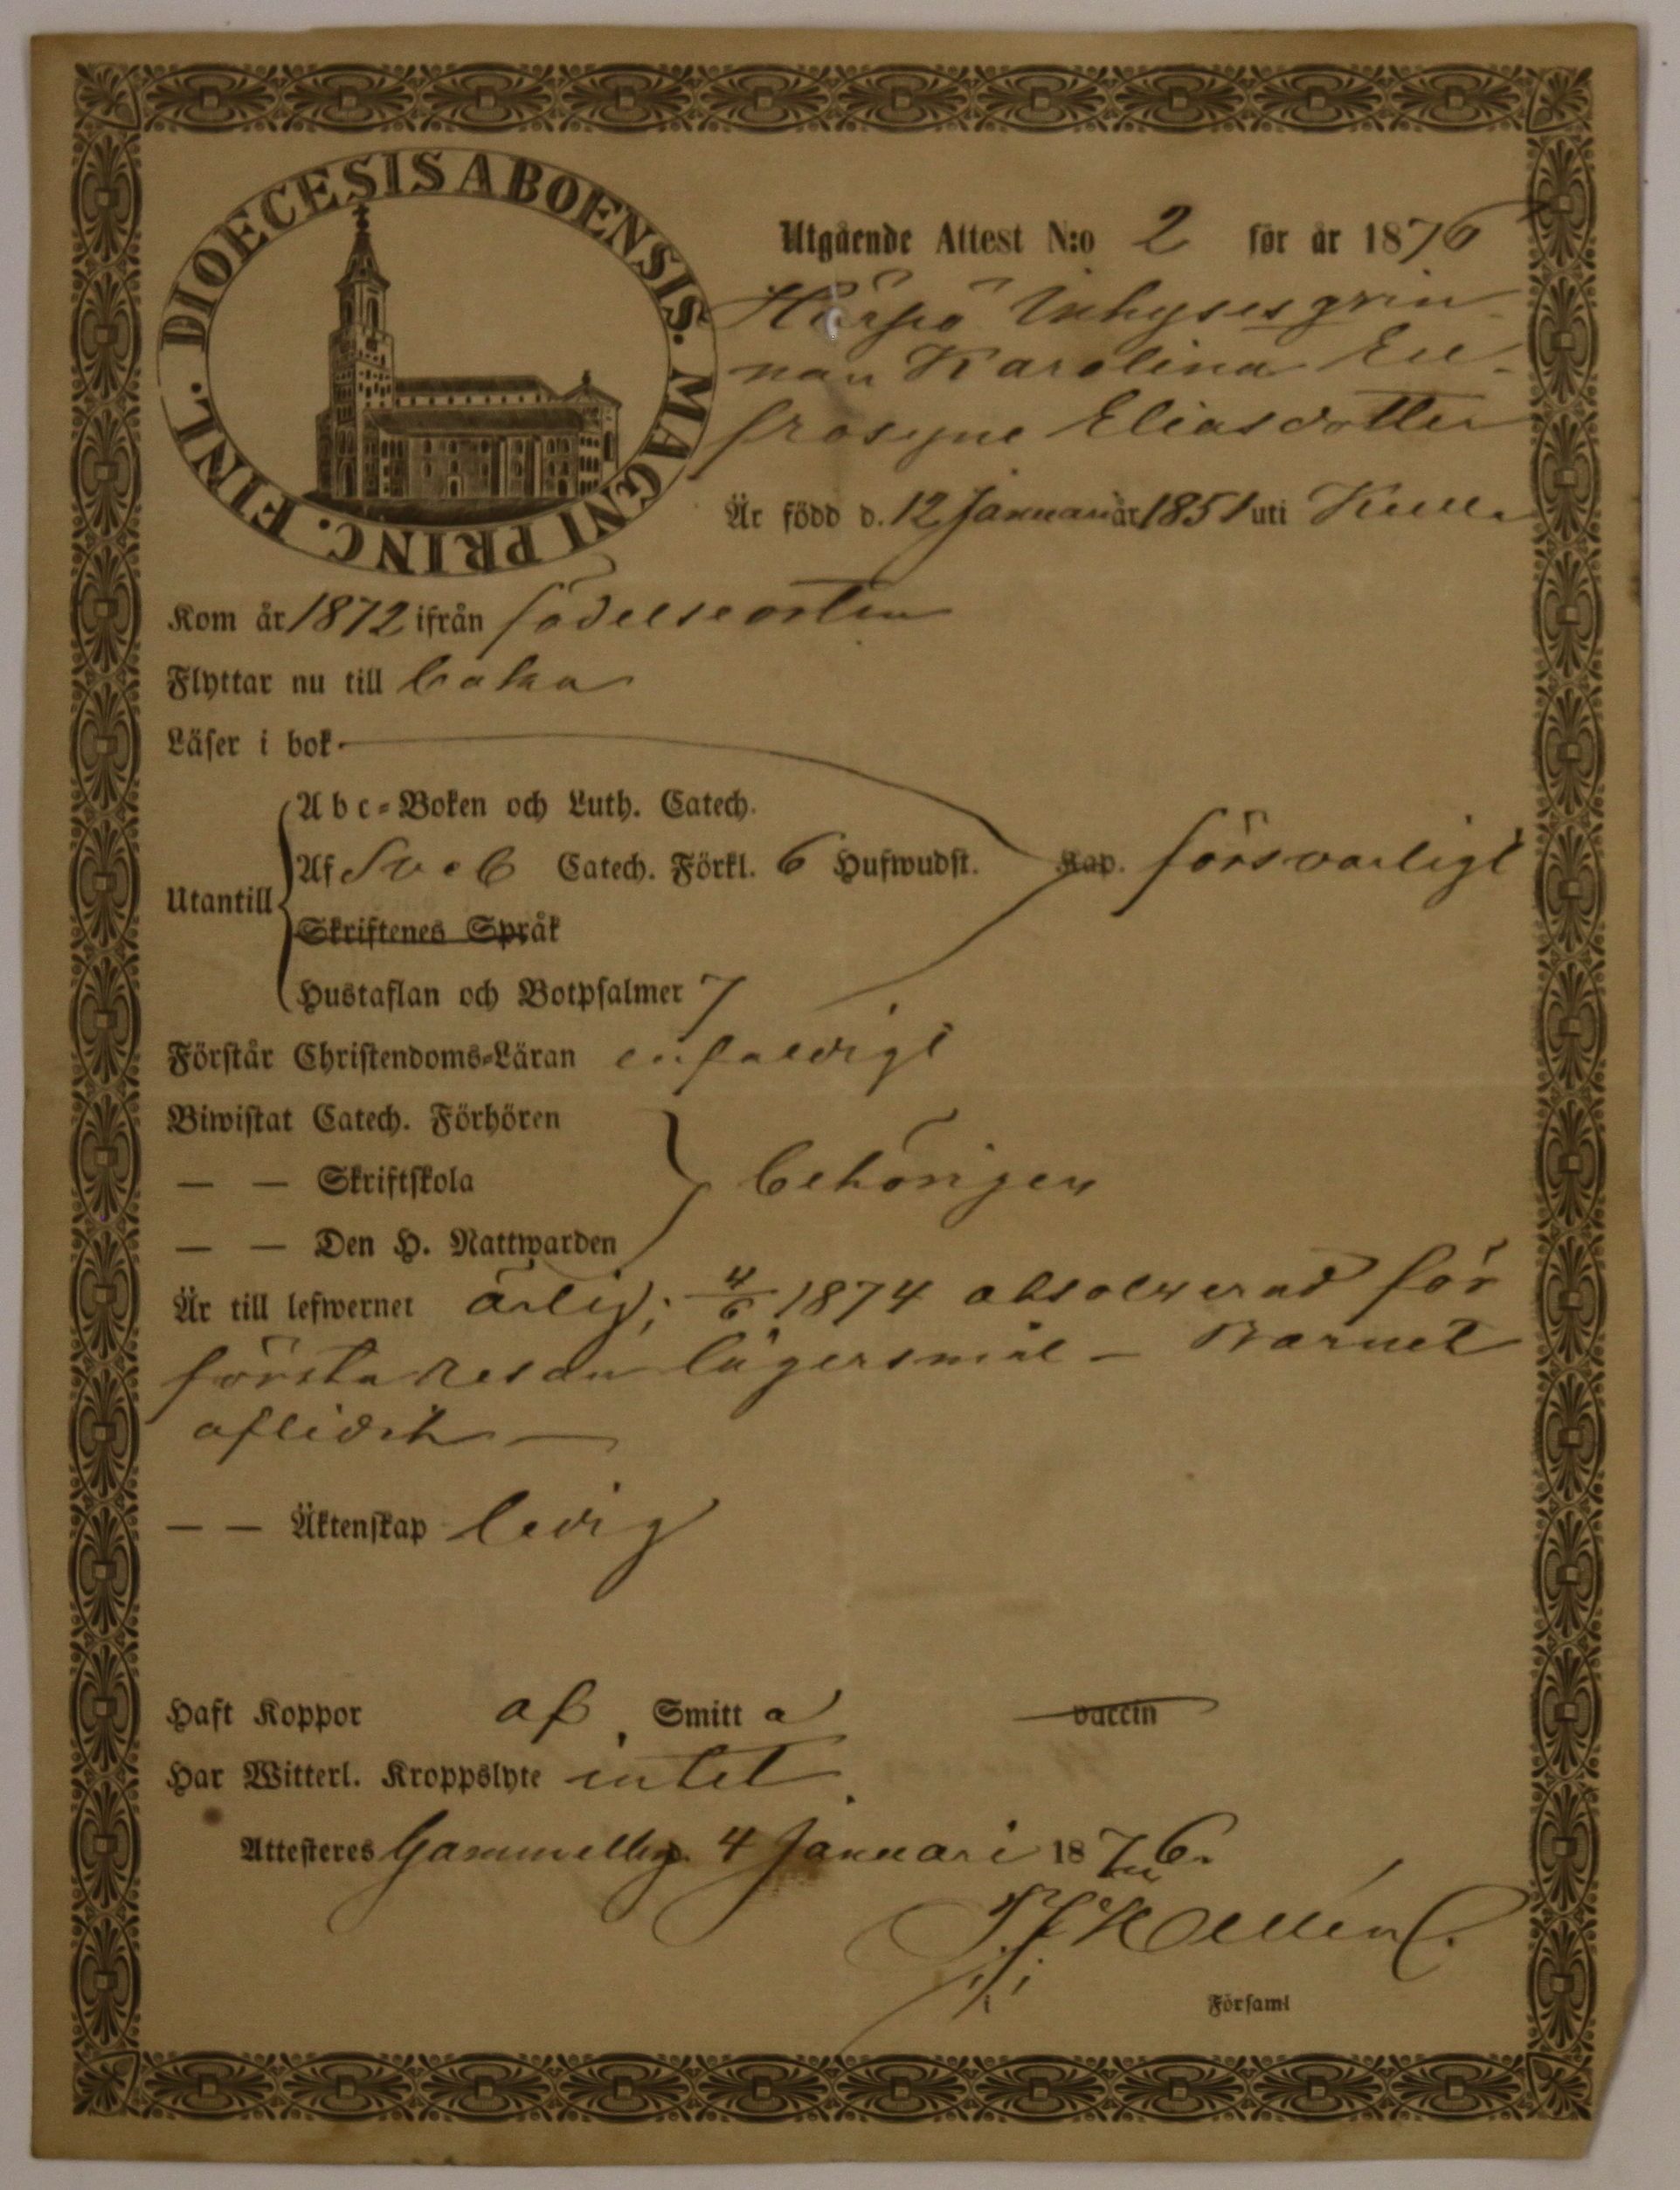 DIOECESIS ABOENSIS. MAGNI PRINC. FINL.
Utgående Attest N:o 2 för år 1876
Inhysesqvin-
nan Karolina Eu-
frosyne Eliasdotter
Är född d. 12 Januari år 1851 uti Kulla
Kom år 1872 ifrån födelseorten
Flyttar nu till baka
Läser i bok
Abc-Boken och Luth. Catech.
Utantill Af Sveb Catech. Förkl. 6 Hufwudst. Kap. försvarligt
Skriftenes Språk
Hustaflan och Botpsalmer 7
Förstår Christendoms-Läran enfaldigt
Biwistat Catech. Förhören
— — Skriftskola behörigen
— — Den H. Nattwarden
Är till lefwernet ärlig; 4/6 1874 absolverad för
första resan lägersmål — Barnet
aflidit —
— — Äktenskap ledig
Haft Koppor af Smitta vaccin
Har Witterl. Kroppslyte intet.
Attesteres Gammelby 4 Januari 1876.
Församl